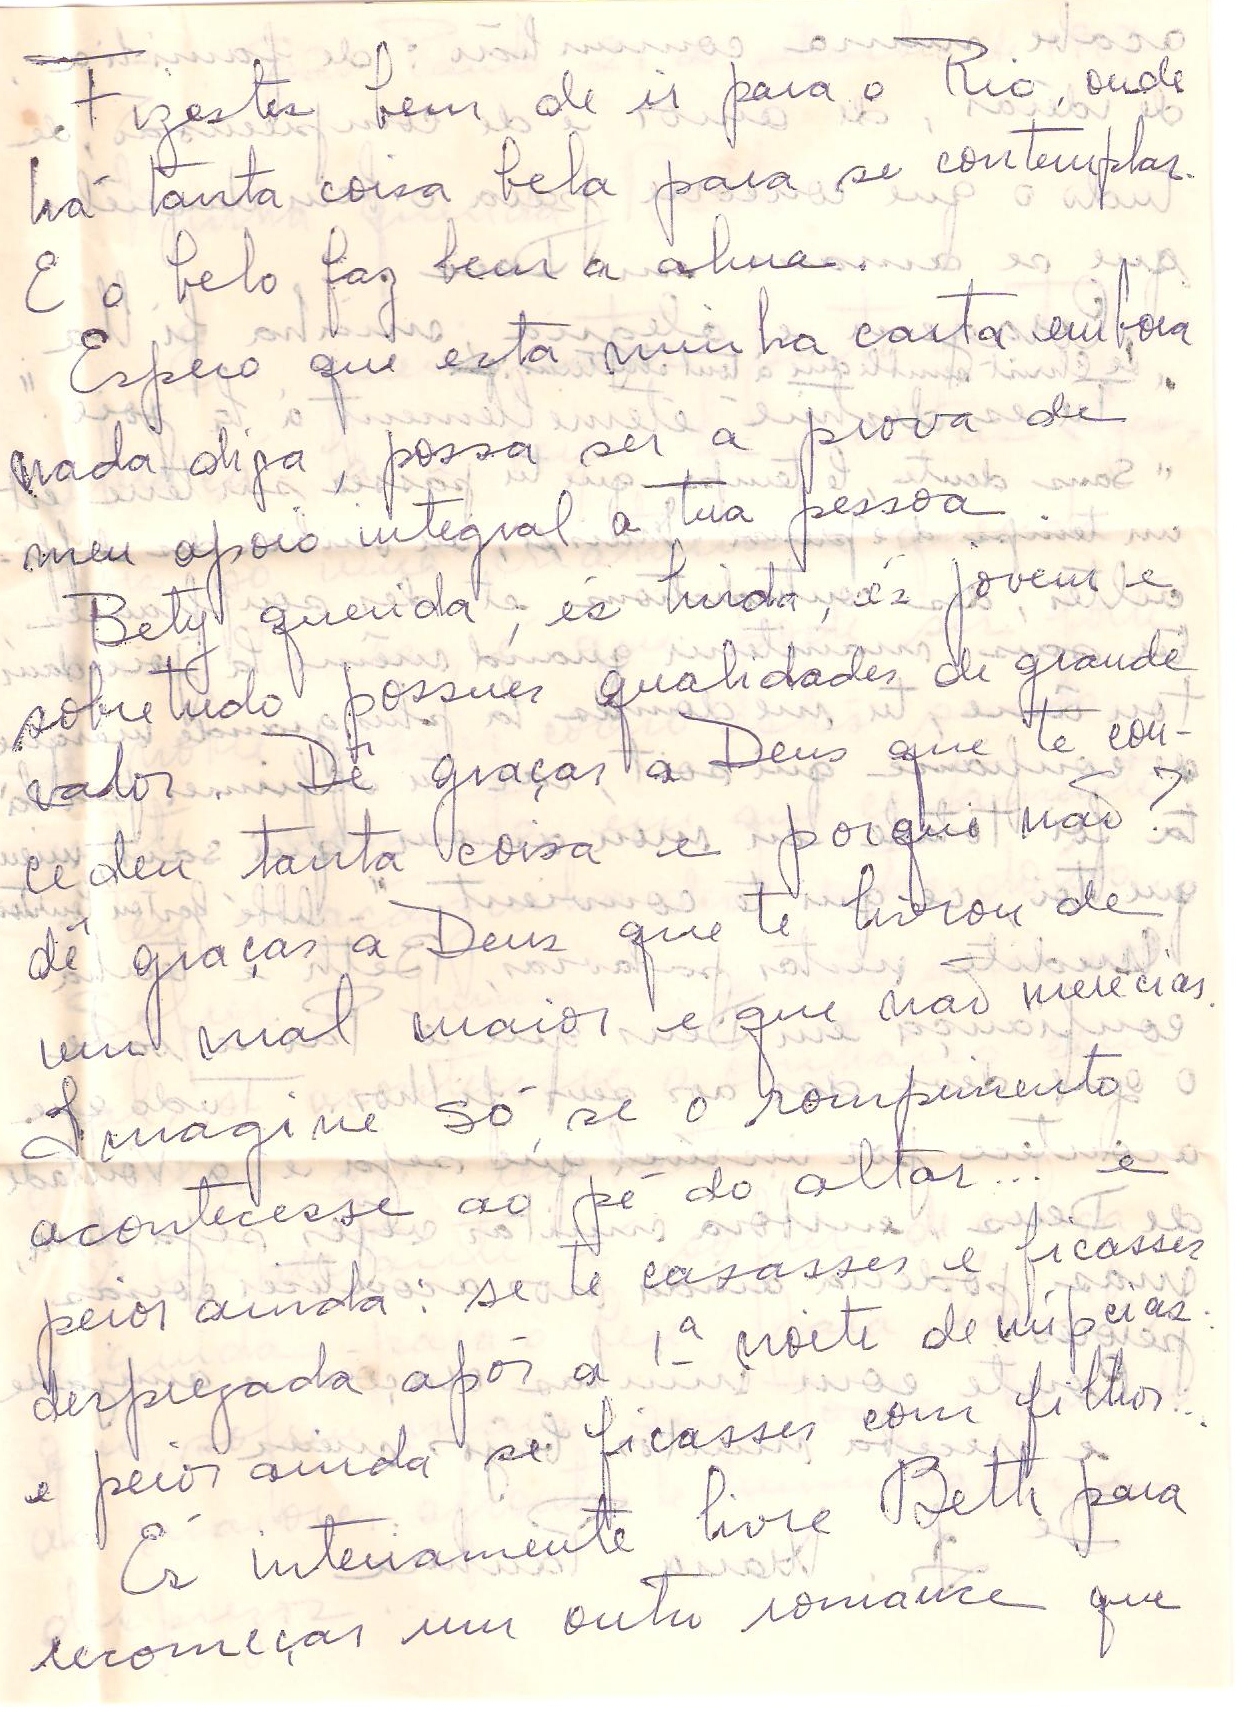 Fizestes bem de ir para o Rio, onde
há tanta coisa bela para se contemplar.
E o belo faz bem a alma.
Espero que esta minha carta embora
nada diga, possa ser a prova de
meu apoio integral a tua pessoa.
Bety querida, és linda, és jovem e
sobretudo possues qualidades de grande
valor. Dê graças a Deus que te con-
cedeu tanta coisa e porque não?
dê graças a Deus que te livrou de
um mal maior e que não merecias.
Imagine só, se o rompimento
acontecesse ao pé do altar... e
peior ainda: se te casasses e ficasses
desprezada após a 1ª noite de núpcias.
e peior ainda se ficasses com filhos...
És inteiramente livre Beth para
recomeçar um outro romance que